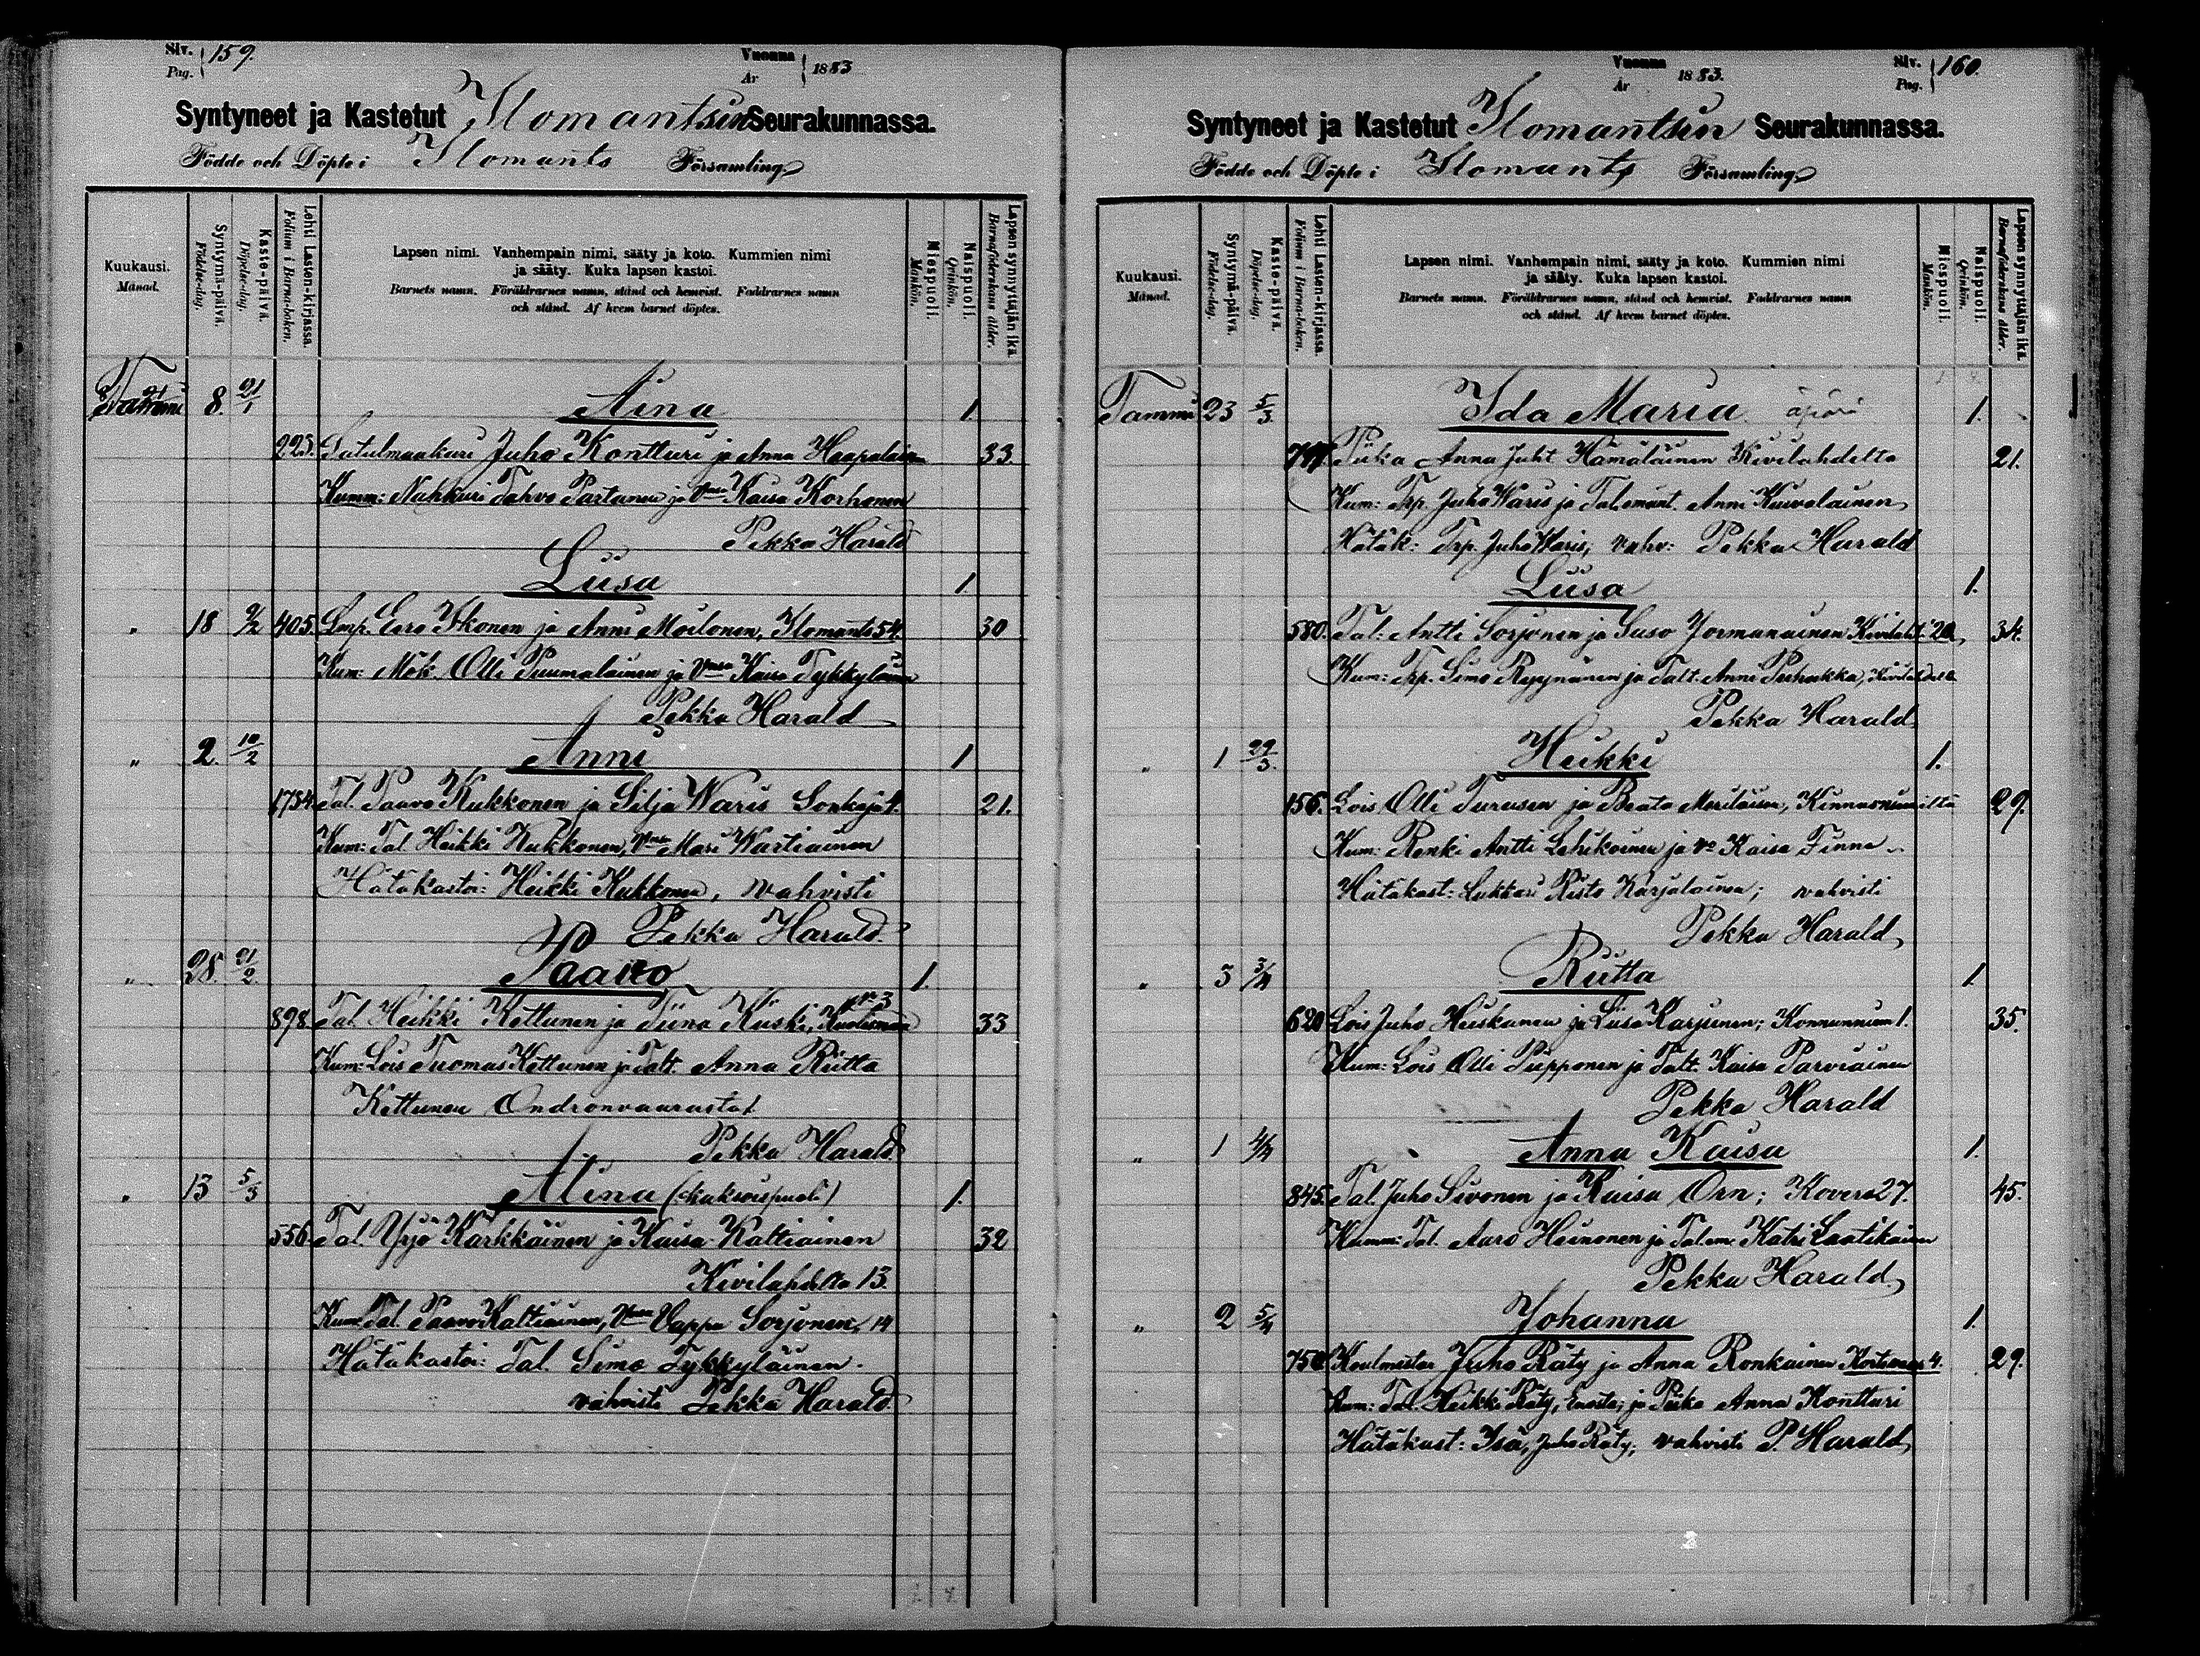 Siv. Pag. 159.
Vuonna År 1883
Syntyneet ja Kastetut Ilomantsin Seurakunnassa.
Födde och Döpte i Ilomants Församling
Kuukausi. Månad.
Syntymä-päivä. Födelse-dag.
Kaste-päivä. Döpelse-dag.
Lehti Lasten-kirjassa. Folium i Barna-boken.
Lapsen nimi. Vanhempain nimi, sääty ja koto. Kummien nimi
ja sääty. Kuka lapsen kastoi.
Barnets namn. Föräldrarnes namn, stånd och hemvist. Faddrarnes namn
och stånd. Af hvem barnet döptes.
Miespuoli. Mankön.
Naispuoli. Qvinkön.
Lapsen synnyttäjän ikä. Barnaföderskans ålder.
Tammi 8. 21/1 Aina 1
223. Satulmaakari Juho Kontturi ja Anna Haapalainen 33.
Kumm: Nahkuri Tahvo Partanen ja Vmsa Kaisa Korhonen
Pekka Harald
Liisa 1.
" 18 9/2 405. Lmp. Eero Ikonen ja Anni Moilonen, Ilomants 54. 30
Kum: Mök. Olli Puumalainen ja Vmsa Kaisa Tykkyläinen
Pekka Harald
" 2. 10/2 Anni 1
1734. Tal. Paavo Kukkonen ja Silja Waris Sonkaja 21.
Kum: Tal Heikki Kukkonen, Vmsa Mari Wartiainen
Hätäkastoi: Heikki Kukkonen, vahvisti
Pekka Harald.
" 28. 21/2. Paavo 1.
898. Tal. Heikki Kettunen ja Tiina Kuski, Kuolismaa No 3 33
Kum: Lois Tuomas Kettunen ja Talt. Anna Riitta
Kettunen Ondronvaarasta
Pekka Harald
" 13 5/3 Alina (kaksoispuoli) 1.
556. Tal. Yrjö Karkkäinen ja Kaisa Kaltiainen 32
Kivilahdelta 13.
Kum: Tal Paavo Kaltiainen, Vmsa Vappu Sorjonen, 14
Hätäkastoi: Tal. Simo Tykkyläinen.
vahvisti Pekka Harald
Vuonna År 1883.
Siv. Pag. 160.
Syntyneet ja Kastetut Ilomantsin Seurakunnassa.
Födde och Döpte i Ilomants Församling
Kuukausi. Månad.
Syntymä-päivä. Födelse-dag.
Kaste-päivä. Döpelse-dag.
Lehti Lasten-kirjassa. Folium i Barna-boken.
Lapsen nimi. Vanhempain nimi, sääty ja koto. Kummien nimi
ja sääty. Kuka lapsen kastoi.
Barnets namn. Föräldrarnes namn, stånd och hemvist. Faddrarnes namn
och stånd. Af hvem barnet döptes.
Miespuoli. Mankön.
Naispuoli. Qvinkön.
Lapsen synnyttäjän ikä. Barnaföderskans ålder.
Tammi 23 5/3. Ida Maria äpärä 1.
Piika Anna Juht Hämäläinen Kivilahdelta 21.
Kum: Trp. Juho Waris ja Tal.emänt. Anni Kuivalainen
Hätäk: Trp. Juho Waris, vahv: Pekka Harald
Liisa 1.
580. Tal: Antti Sorjonen ja Suso Jormanainen Kivilaht. 20, 34.
Kum: Trp. Simo Ryynänen ja Talt. Anni Puhakka, Kivilahdelta
Pekka Harald
" 1 29/3. Heikki 1.
156. Lois Olli Turusen ja Beata Meriläinen, Kinnasniemiltä 29.
Kum: Renki Antti Lehikoinen ja vo Kaisa Finne
Hätäkast: Lukkari Risto Karjalainen; vahvisti
Pekka Harald
" 3 3/4 Riitta 1.
620. Lois Juho Heiskanen ja Liisa Karjunen; Konnunniem 1. 35.
Kum: Lois Olli Piipponen ja Talt. Kaisa Parviainen
Pekka Harald
" 1 4/4 Anna Kaisa 1.
845. Tal. Juho Sivonen ja Kaisa Orn; Kovero 27. 45.
Kumm: Tal. Aaro Heinonen ja Talem. Katri Laatikainen
Pekka Harald
" 2 5/4 Johanna 1.
750. Koulmestar Juho Räty ja Anna Ronkainen 4. 29.
Kum: Tal. Heikki Räty, Enosta; ja Piika Anna Kontturi
Hätäkast: Isä, Juho Räty; vahvisti P. Harald